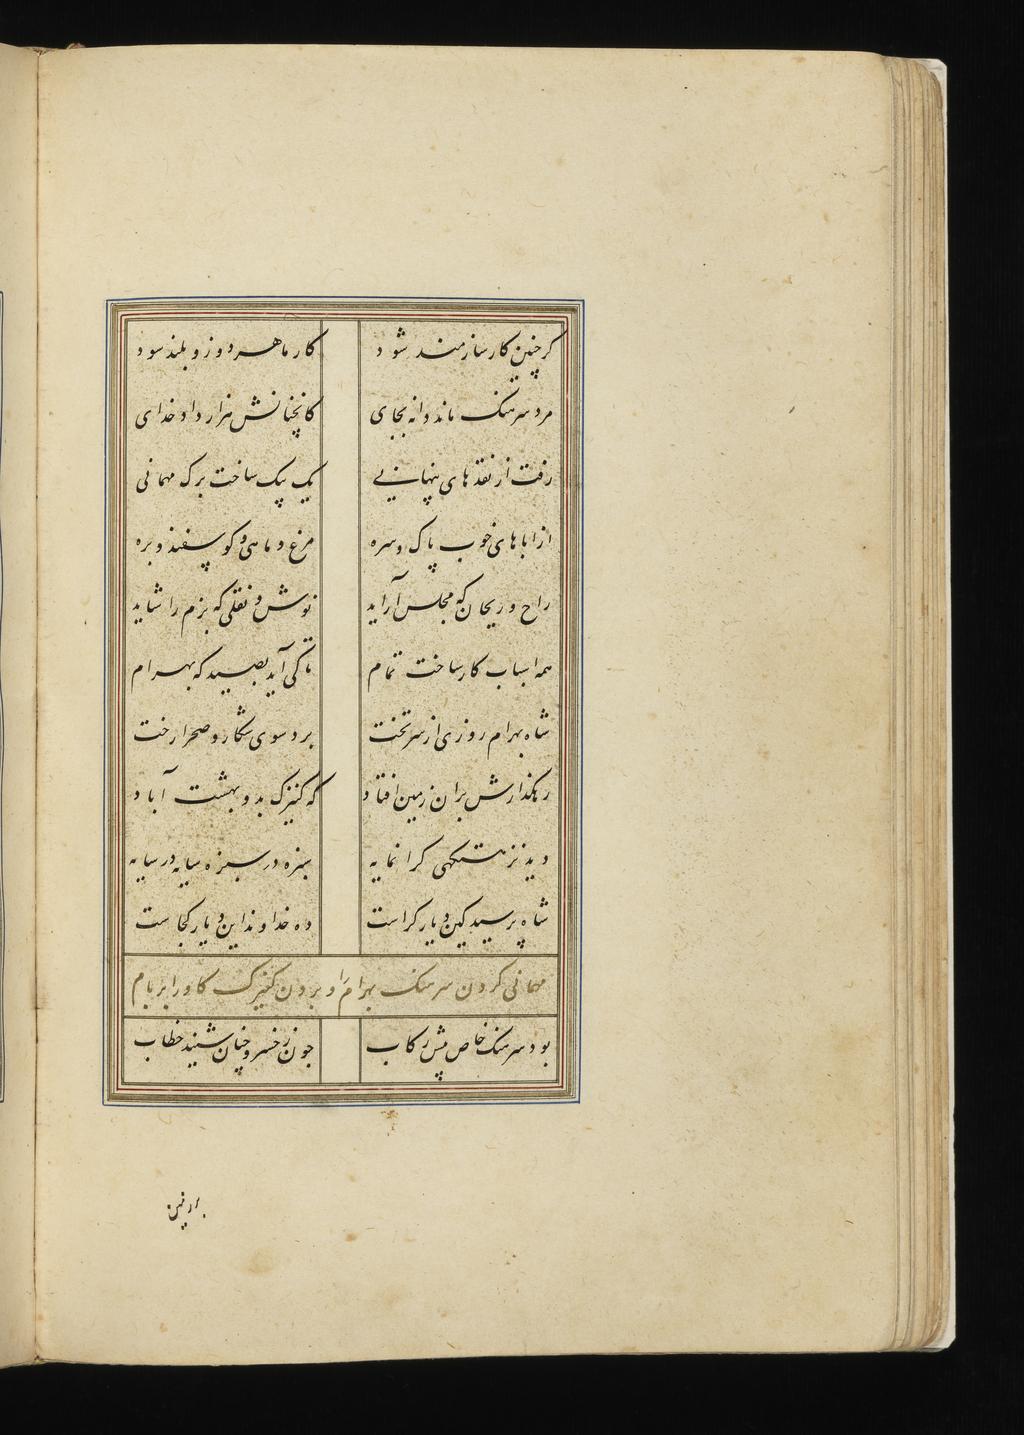 کر چنین کار سازمند شود کار ما هر دو زو بلند شود
مرد سرهنک ماند وانه بجای کانچنانش هزار داد خدای
رفت از نقدهای پنهانیی یک بیک ساخت برک مهمانی
از اباهای خوب پاک و سره مرغ و ماهی و کوسفند و بره
راح و ریحان که مجلس آراید نوش و نقلی که بزم را شاید
همه اسباب کار ساخت تمام تا کی آید بصید که بهرام
شاه بهرام روزی از سر تخت برد سوی شکار و صحرا رخت
رهکذارش بران زمین افتاد که کنیزک بدو بهشت آباد
دید نزهتکهی کرانمایه سبزه در سبزه سایه در سایه
شاه پرسید کین دیار کراست ده خداوند این دیار کجاست
مهمانی کردن سرهنک بهرام را و بردن کنیزک کاو را بر بام
بود سرهنک خاص پیش رکاب چون ز خسرو چنان شنید خطاب
بر زمین